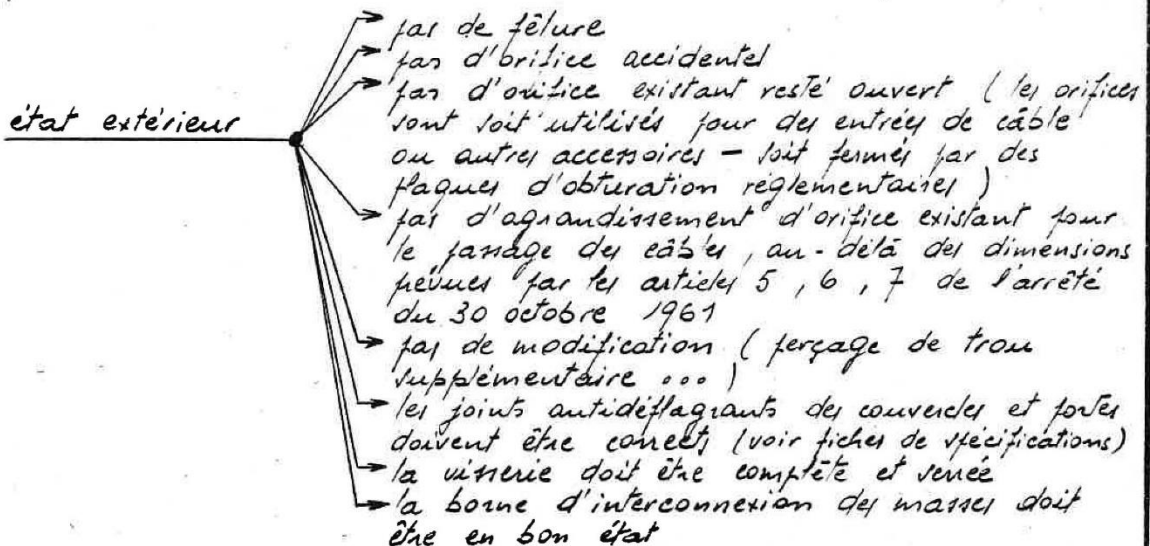 pas de fêlure
pas d'orifice accidentel
pas d'orifice existant resté ouvert ( les orifices
état extérieur
sont soit utilisés pour des entrées de câble
ou autres accessoires - soit fermés par des
plaques d'obturation réglementaires )
pas d'agrandissement d'orifice existant pour
le passage des câbles, au-délà des dimensions
pévues par les articles 5, 6, 7 de l'arrêté
du 30 octobre 1961
pas de modification ( perçage de trou
supplémentaire ... )
les joints antidéflagrants des couvercles et portes
doivent être corrects (voir fiches de spécifications)
la visserie doit être complète et serrée
la borne d'interconnexion des masses doit
être en bon état